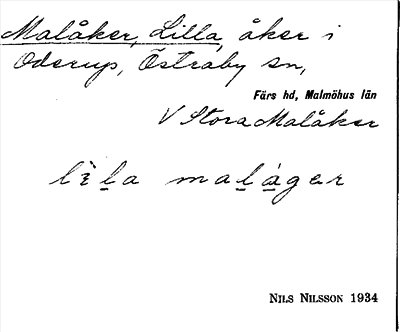 Malåker, Lilla, åker i
Oderup, Östraby sn,
Färs hd, Malmöhus län
V Stora Malåker
lìla maláger
NILS NILSSON 1934